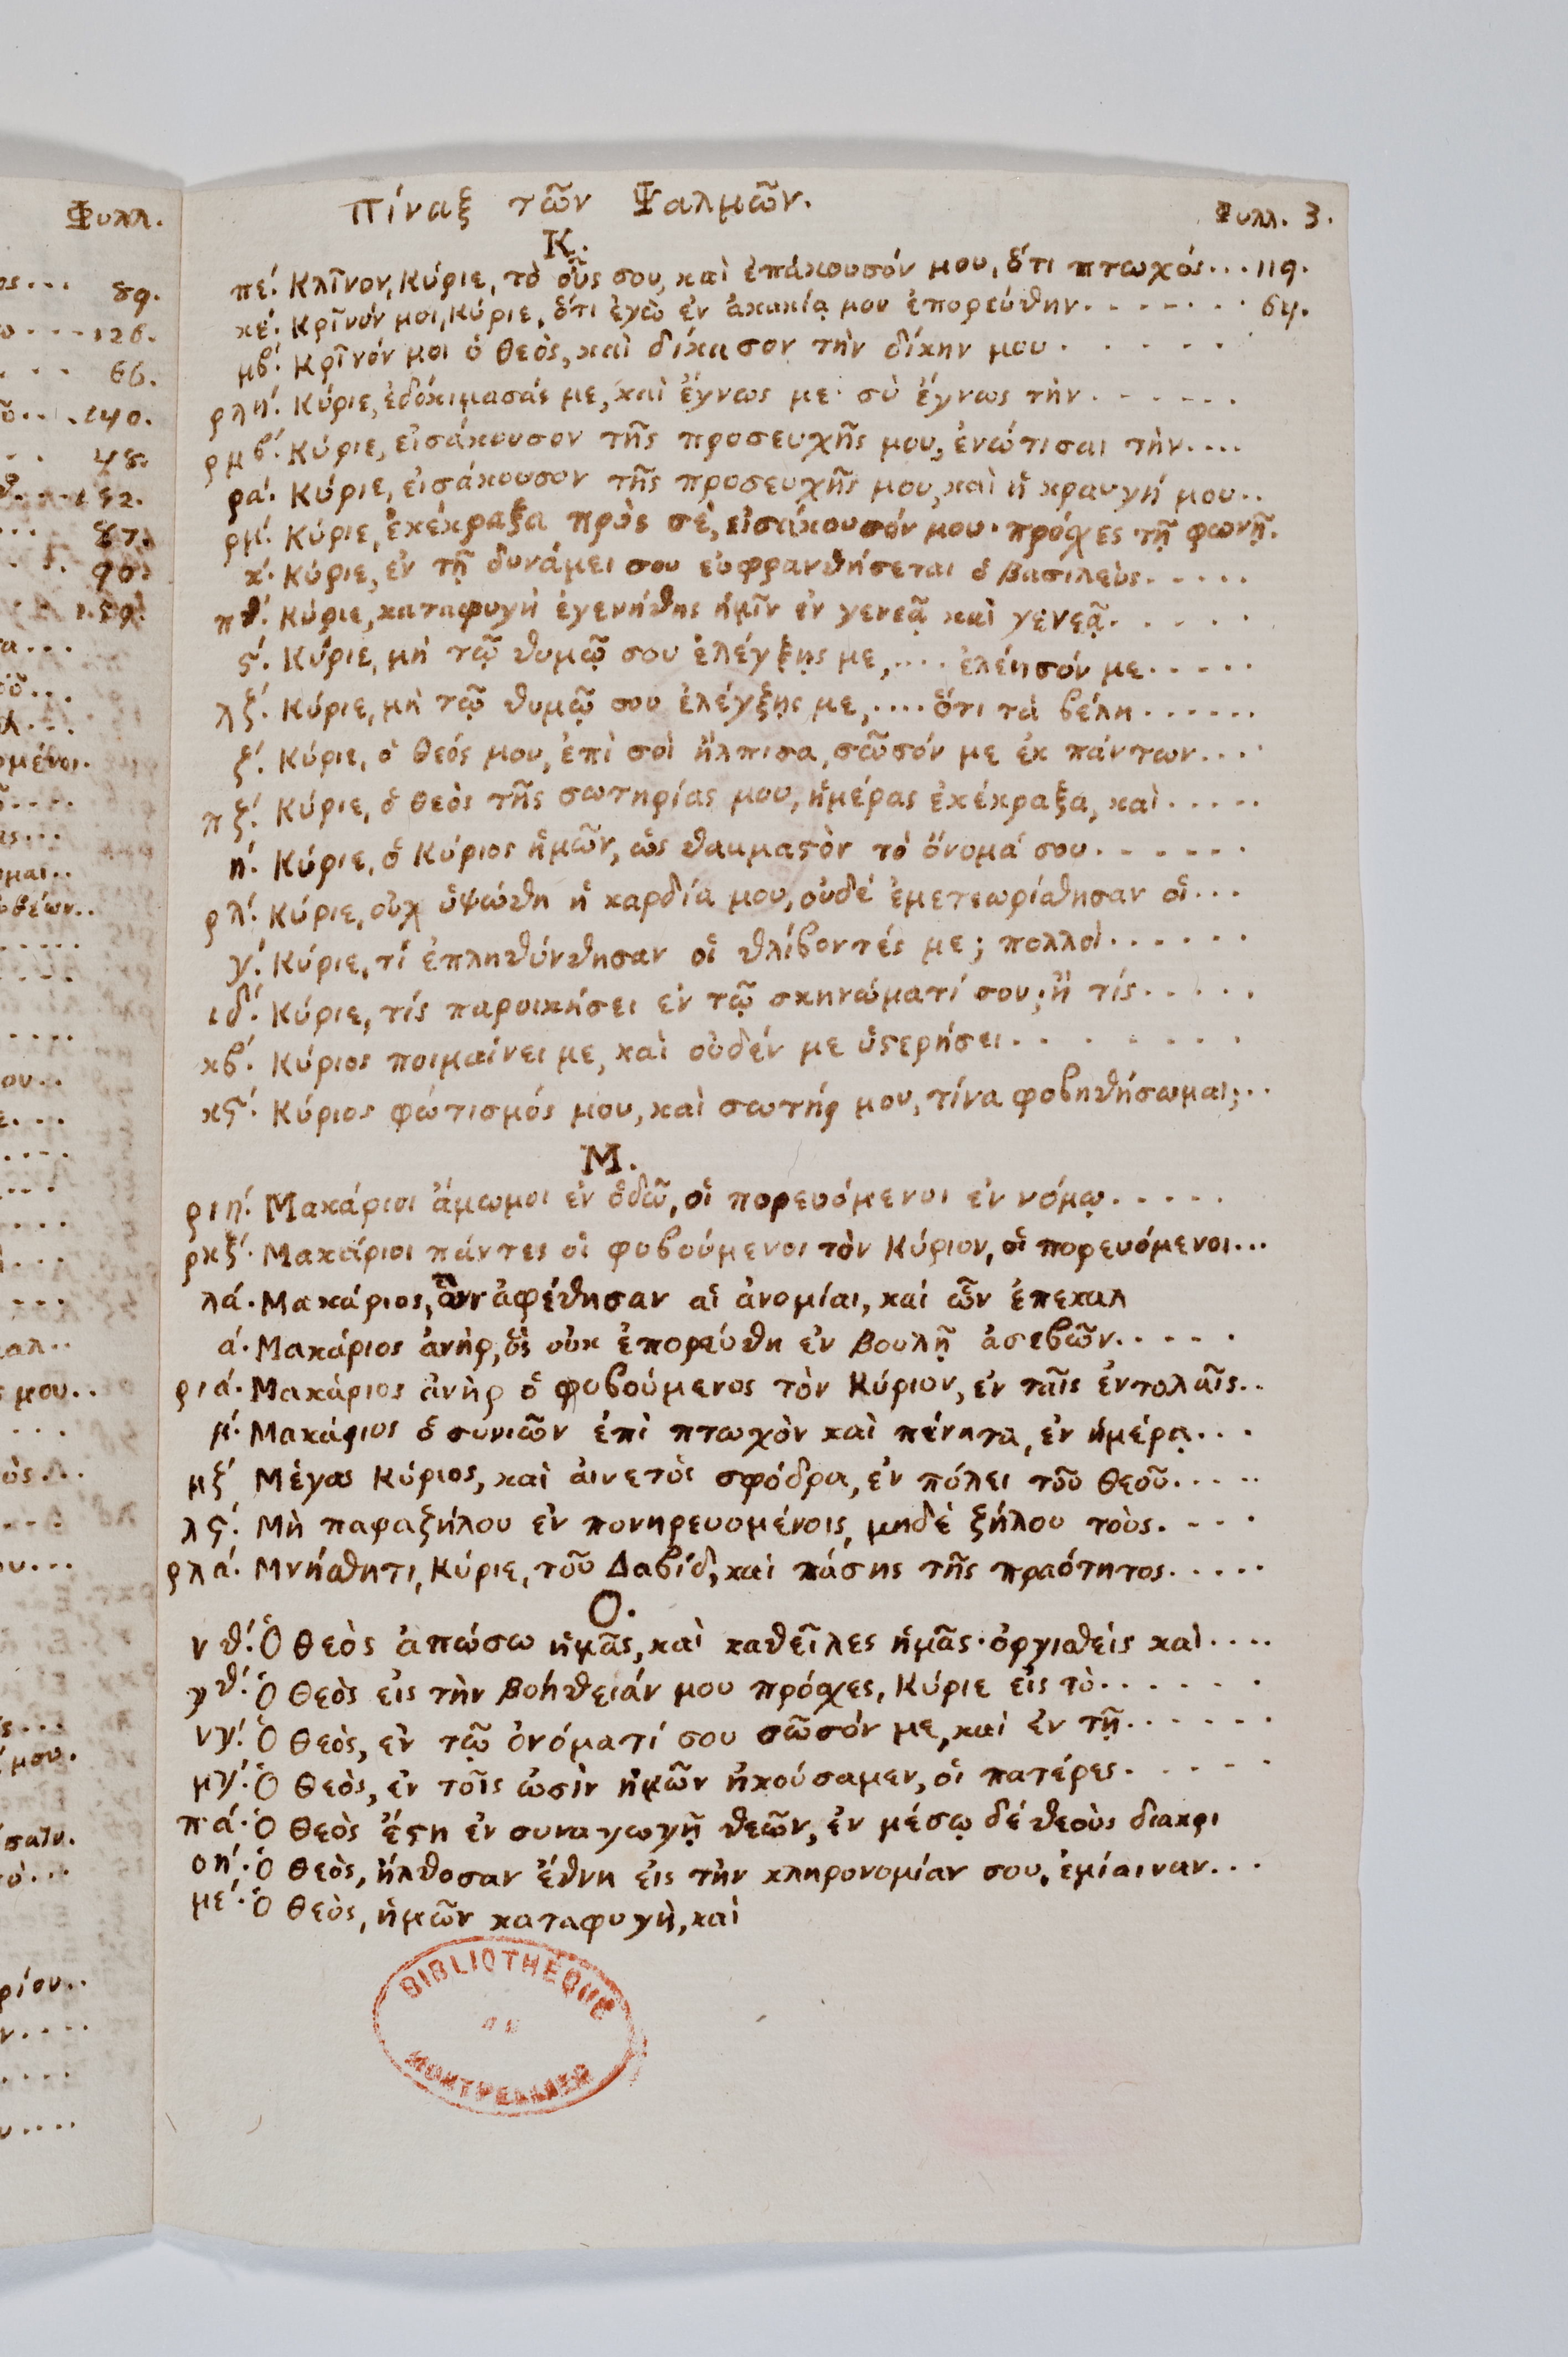 Φυλλ.
89.
126.
66.
140.
48.
152.
87.
90.
159.
ομένοι.
μου..
μου.
ρίου..
Πίναξ τῶν Ψαλμῶν.
Φυλλ. 3.
Κ.
πέ. Κλῖνον, Κύριε, τὸ οὖς σου, καὶ ἐπάκουσόν μου, ὅτι πτωχός... 119.
κέ. Κρῖνόν μοι, Κύριε, ὅτι ἐγὼ ἐν ἀκακίᾳ μου ἐπορεύθην....... 64.
μβ΄. Κρῖνόν μοι ὁ Θεὸς, καὶ δίκασον τὴν δίκην μου......
ρλή. Κύριε, ἐδοκιμασάς με, καὶ ἔγνως με· σὺ ἔγνως τὴν......
ρμβ΄. Κύριε, εἰσάκουσον τῆς προσευχῆς μου, ἐνώτισαι τὴν....
ρά. Κύριε, εἰσάκουσον τῆς προσευχῆς μου, καὶ ἡ κραυγή μου..
ρμ΄. Κύριε, ἐκέκραξα πρὸς σὲ, εἰσάκουσόν μου· πρόσχες τῇ φωνῇ.
κ΄. Κύριε, ἐν τῇ δυνάμει σου εὐφρανθήσεται ὁ βασιλεὺς.....
πθ΄. Κύριε, καταφυγὴ ἐγενήθης ἡμῖν ἐν γενεᾷ καὶ γενεᾷ.....
ς΄. Κύριε, μὴ τῷ θυμῷ σου ἐλέγξῃς με,.... ἐλέησόν με.....
λζ΄. Κύριε, μὴ τῷ θυμῷ σου ἐλέγξῃς με,.... ὅτι τὰ βέλη......
ζ΄. Κύριε, ὁ Θεός μου, ἐπὶ σοὶ ἤλπισα, σῶσόν με ἐκ πάντων....
πζ΄. Κύριε, ὁ Θεὸς τῆς σωτηρίας μου, ἡμέρας ἐκέκραξα, καὶ.....
ή. Κύριε, ὁ Κύριος ἡμῶν, ὡς θαυμαςὸν τὸ ὄνομά σου......
ρλ΄. Κύριε, οὐχ ὑψώθη ἡ καρδία μου, οὐδέ ἐμετεωρίσθησαν οἱ...
γ΄. Κύριε, τί ἐπληθύνθησαν οἱ θλίβοντές με; πολλοὶ......
ιδ΄. Κύριε, τίς παροικήσει ἐν τῷ σκηνώματί σου; ἢ τίς.....
κβ΄. Κύριος ποιμαίνει με, καὶ οὐδέν με ὑςερήσει........
κς΄. Κύριος φώτισμός μου, καὶ σωτήρ μου, τίνα φοβηθήσωμαι;..
Μ.
ριή. Μακάριοι ἄμωμοι ἐν ὁδῶ, οἱ πορευόμενοι ἐν νόμῳ.....
ρκζ΄. Μακάριοι πάντες οἱ φοβούμενοι τὸν Κύριον, οἱ πορευόμενοι...
λά. Μακάριος, ὧν ἀφέθησαν αἱ ἀνομίαι, καὶ ὧν ἐπεκαλ
ά. Μακάριος ἀνὴρ, ὃς οὐκ ἐπορεύθη ἐν βουλῇ ἀσεβῶν.....
ριά. Μακάριος ἀνὴρ ὁ φοβούμενος τὸν Κύριον, ἐν ταῖς ἐντολαῖς..
μ΄. Μακάριος ὁ συνιῶν ἐπὶ πτωχὸν καὶ πένητα, ἐν ἡμέρᾳ...
μζ΄ Μέγας Κύριος, καὶ αἰνετὸς σφόδρα, ἐν πόλει τοῦ Θεοῦ.....
λς΄. Μὴ παραζήλου ἐν πονηρευομένοις, μηδὲ ζήλου τοὺς....
ρλά. Μνήσθητι, Κύριε, τοῦ Δαβίδ, καὶ πάσης τῆς πραότητος.....
Ο.
νθ΄. Ὁ Θεὸς ἀπώσω ἡμᾶς, καὶ καθεῖλες ἡμᾶς· ὀργισθείς καὶ....
γθ΄. Ὁ Θεὸς εἰς τὴν βοήθειάν μου πρόσχες, Κύριε εἰς τὸ......
νγ΄. Ὁ Θεὸς, ἐν τῷ ὀνόματί σου σῶσόν με, καὶ ἐν τῇ......
μγ΄. Ὁ Θεὸς, ἐν τοῖς ὠσὶν ἡμῶν ἠκούσαμεν, οἱ πατέρες.....
πά. Ὁ Θεὸς ἔςη ἐν συναγωγῇ θεῶν, ἐν μέσῳ δέ θεοὺς διακρι
οή. Ὁ Θεὸς, ἤλθοσαν ἔθνη εἰς τὴν κληρονομίαν σου, ἐμίαιναν...
μέ. Ὁ Θεὸς, ἡμῶν καταφυγὴ, καὶ
BIBLIOTHÈQUE
DE
MONTPELLIER